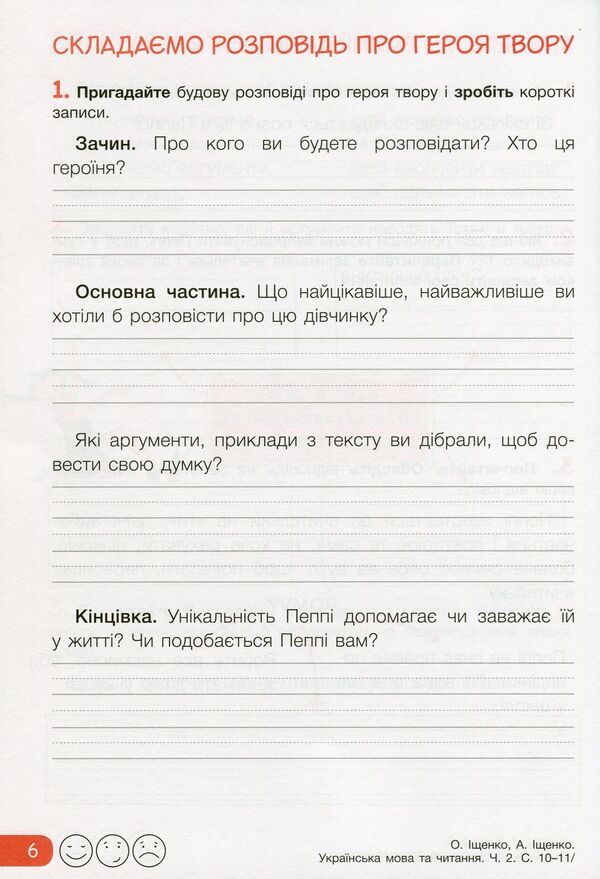 СКЛАДАЄМО РОЗПОВІДЬ ПРО ГЕРОЯ ТВОРУ
1. Пригадайте будову розповіді про героя твору і зробіть короткі
записи.
Зачин. Про кого ви будете розповідати? Хто ця
героїня?
Основна частина. Що найцікавіше, найважливіше ви
хотіли б розповісти про цю дівчинку?
Які аргументи, приклади з тексту ви дібрали, щоб до-
вести свою думку?
Кінцівка. Унікальність Пеппі допомагає чи заважає їй
у житті? Чи подобається Пеппі вам?
6
О. Іщенко, А. Іщенко.
Українська мова та читання. Ч. 2. С. 10–11/